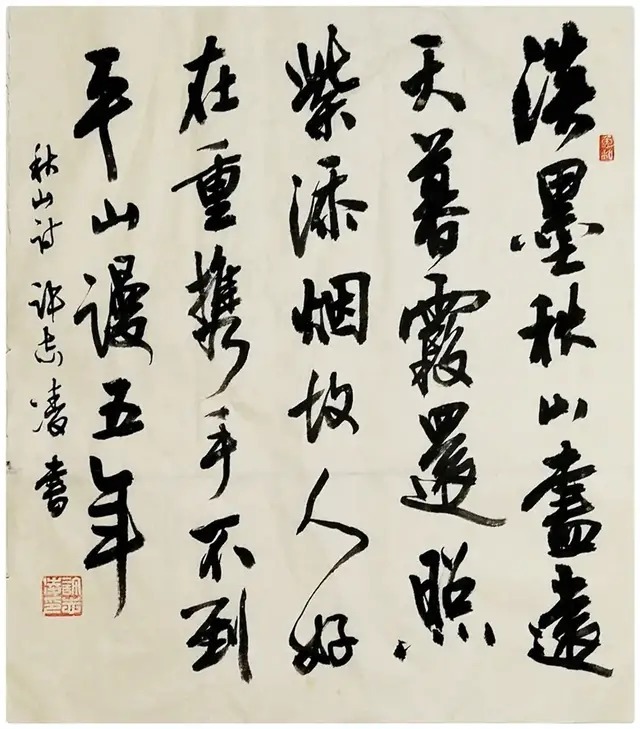 淡墨秋山畫遠
天暮霞還照
紫添烟故人好
在重攜手不到
平山謾五年
秋山詩 許志凌書